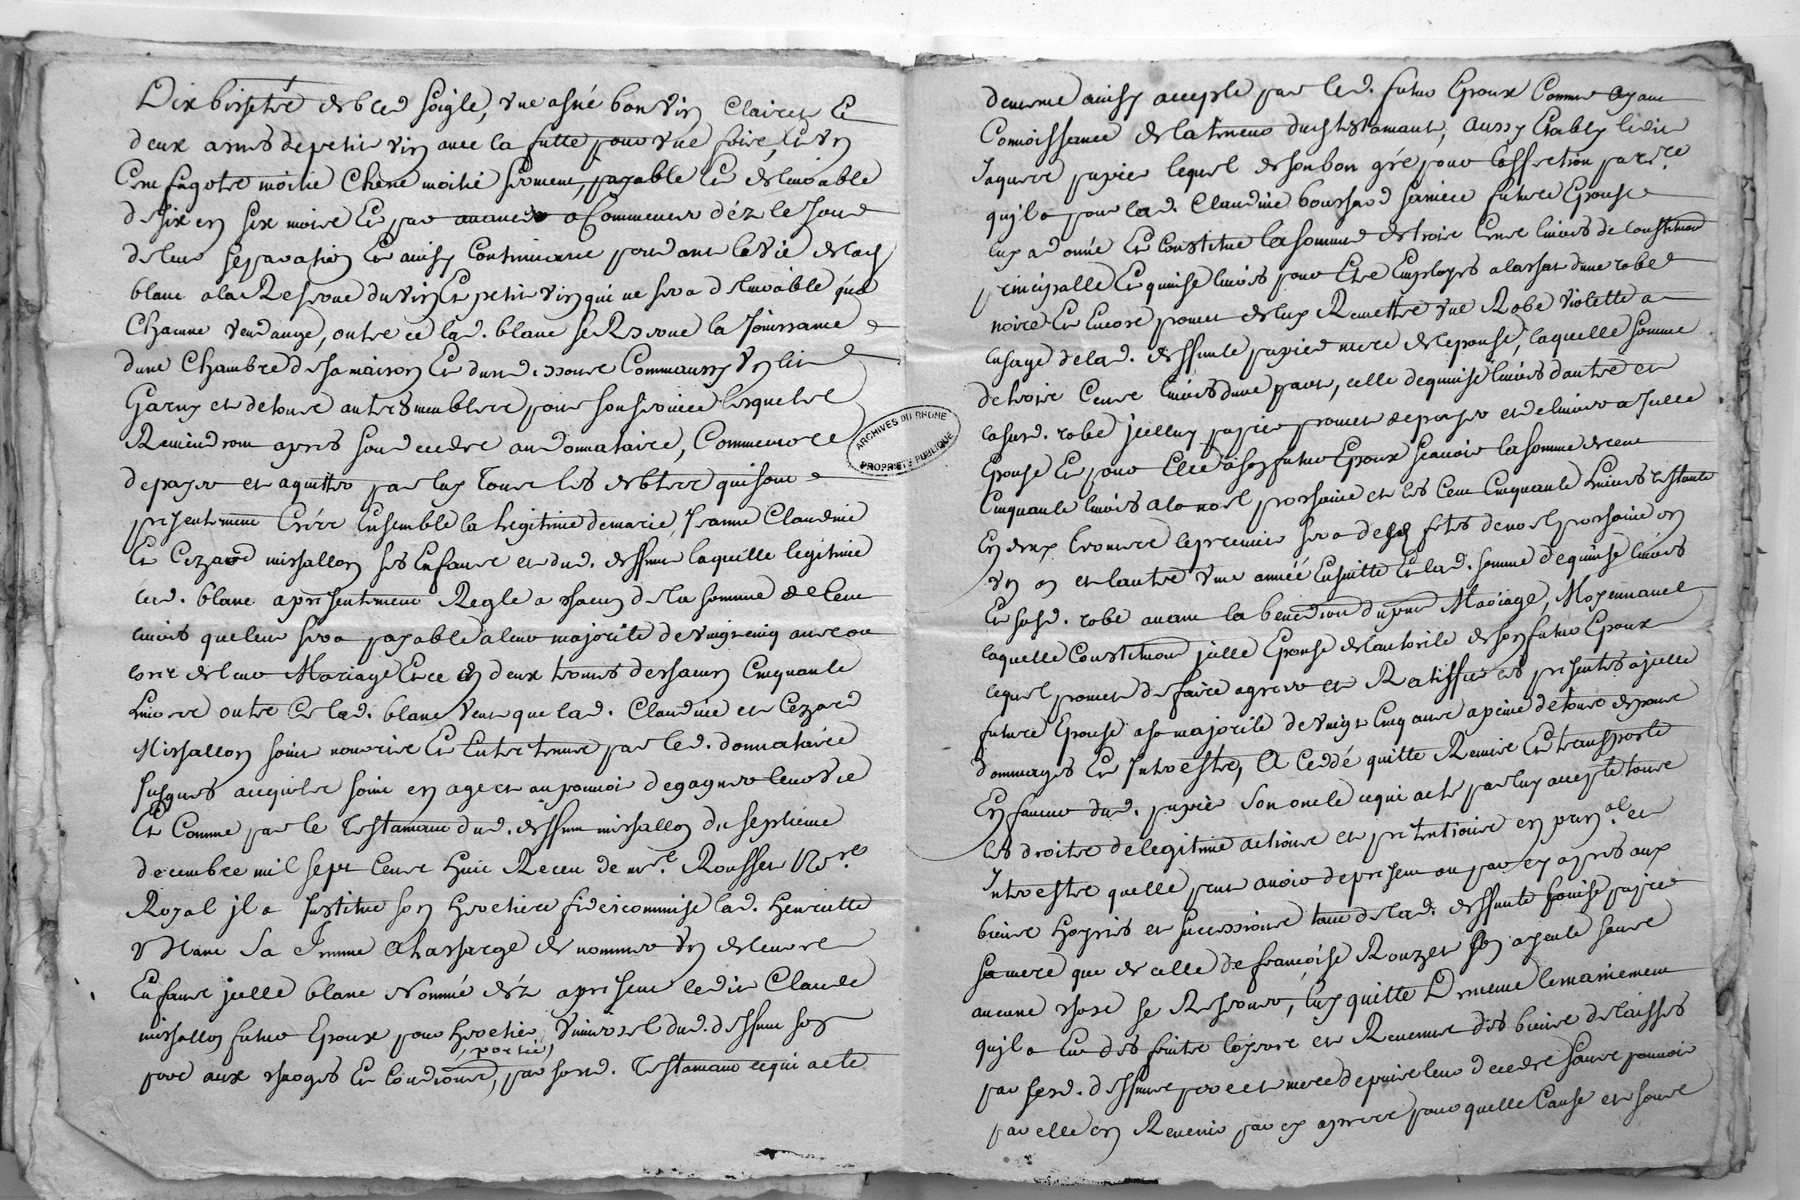 Dix bissetre de bled soigle, une asné bon vin clairet et
deux asnés de petit vin avec la futte pour une foire, et un
Cent fagotre moitié Chene moitié froment, payable et delivrable
de six en six moire et par avance a Commencer déz le Jour
de leur separation et ainsy Continuant pendant la vie de lad.
blanc a la Reserve du vin et petit vin qui ne sera delivrable qua
Chacune vendange, outre ce lad. blanc se Reserve la Jouissance
dune Chambre de sa maison et dund. Commaussy un lit
Garny et de toure autres meublere pour son service lesquelre
Reviendront apres son decedre audonnataire, Comme encore
de payer et aquitter par luy toure les debtere qui sont
presentement Créer Ensemble la Legitime de marie, Jeanne Claudine
Et Cezard missallon ses Enfanre et dud. deffunt laquelle legitime
lad. blanc a presentement Regle a chacun de la somme de Cent
livres que leur sera payable a leur majorité de vingt cinq anre ou
lore de leur Mariage Et ce en deux termes de chacun Cinquante
Livres outre Ce lad. blanc veut que lad. Claudine et Cezard
Missallon soint nourrire et Entretenus par led. donnataire
Jusques acequilre soint en age et au pouvoir de gagner leur vie
Et Comme par le Testament dud. deffunt missallon du septieme
decembre mil sept Cent huit Receu de me. Rousset No.re
Royal jl a Institue son heretiere fideicommise lad. henriette
blanc sa femme a la charge de nommer un de leurre
Enfanre jcelle blanc a Nommé déz apresent ledit Claude
missallon futur Epoux pour heretier universel dud. deffunt son
pere aux charges et Conditions, portéé par sond. Testament cequi acte
ARCHIVES DU RHONE
PROPRIETE PUBLIQUE
dememe ainsy accepte par led. futur Epoux Comme ayant
Connoissance de la teneur dudt testamant, aussy Etably ledit
Jaquere papier lequel de son bon gré pour laffection par.re
qujl a pour lad. Claudine boussard sa niece future Epouse
luy a donnée et Constitue la somme de troire Cent livres de Constitution
principalle Et quinse livres pour Etre Employés a lachat dune robe
noire et Encore promet de luy Remettre une Robe violette a
lusage de lad. deffunte papier mere de lepouse, laquelle somme
de troire Cent livres dune part, celle de quinse livres dautre et
lasusd. robe jcelluy papier promet de payer et delivrer a Jcelle
Epouse Et pour Elle a son futur Epoux scavoir la somme de cent
Cinquante livres a la noel prochaine et les Cent Cinquante Livres restante
En deux termere le premier sera de la fetes de noel prochaine en
un an et lautre une année Ensuitte Et lad. somme de quinse livres
Et susd. robe avant la benediction du pnt Mariage, Moyennant
laquelle Constitution jcelle Epouse de lautorité de son futur Epoux
lequel promet de faire agreer et Ratiffier ces presentes a jcelle
future Epouse a sa majorité de vingt Cinq anre a peine de toure depane
dommages Et Interestre, A Cedé quitte Remire Et transporte
En faveur dud. papier son oncle cequi acte par luy accepte toure
les droitre de legitime actionre et pretentionre en prin.al et
Interestre quelle peut avoir de present ou par cy apres aux
bienre hoyriés et successionre tant de lad. deffunte fransoise papier
sa mere que de celle de francoise Rouzet son ayeule sanre
aucune chose se Reserver, luy quitte de meme le maniement
qujl a Eu des fruitre loyerre et Revenure des bienre delaisses
par sesd. deffunre pere et mere depuire leur decedre sanre pouvoir
par elle en Revenir par cy apres pour quelle Cause et sanre